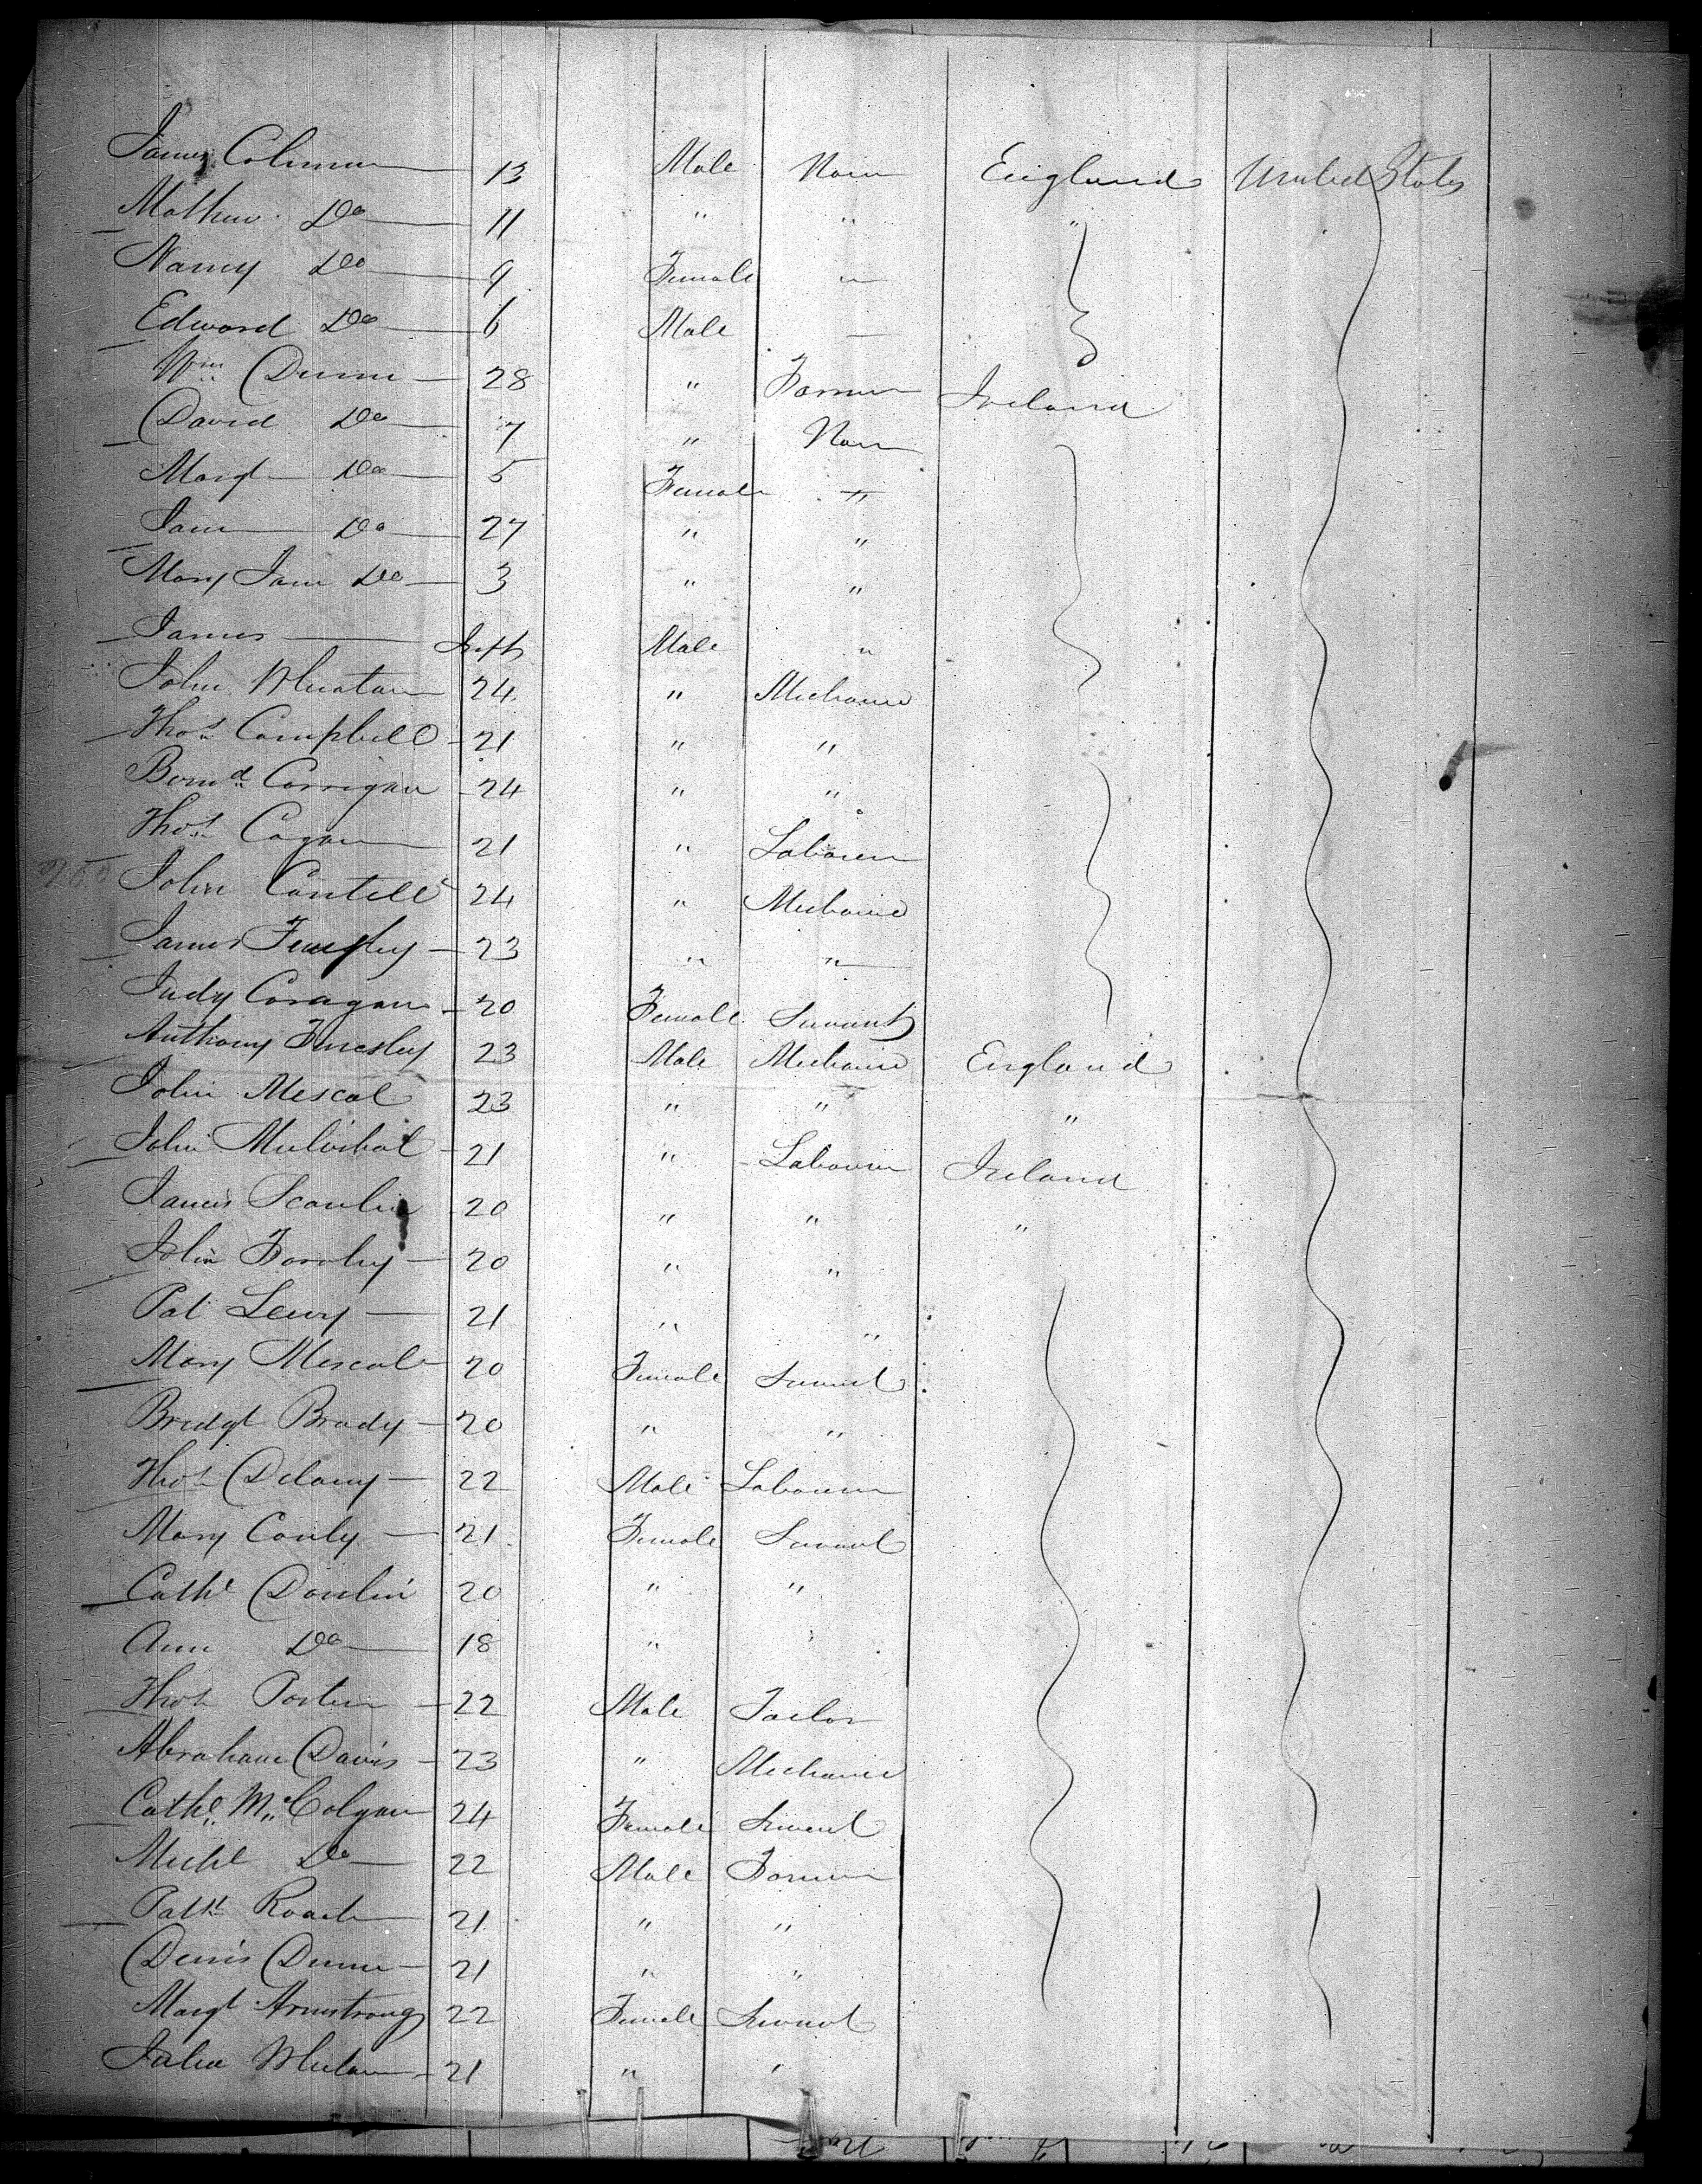 James Coleman 13 Male None England United States
Mathew Do 11 " " "
Nancy Do 9 Female "
Edward Do 6 Male
Wm Dunn 28 " Farmer Ireland
David Do 7 " None
Margt Do 5 Female "
Jane Do 27 " "
Mary Jane Do 3 " "
James Inft Male "
John 24 " Mechanic
Thos Campbell 21 " "
Bernd Corrigan 24 " "
Thos Cogan 21 " Labourer
John Cantell 24 " Mechanic
James 23 " "
Judy Coragan 20 Female Servant
Anthony 23 Male Mechanic England
John Mescal 23 " " "
John Mulvihal 21 " Labourer Ireland
James Scanlin 20 " " "
John Farley 20 " "
Pat 21 " "
Mary Mescal 20 Female Servant
Bridgt Brady 20 " "
Thos Delany 22 Male Labourer
Mary Conly 21 Female Servant
Cathe Donlin 20 " "
Ann Do 18 " "
Thos Porter 22 Male Tailor
Abraham Davis 23 " Mechanic
Cathe McColgan 24 Female Servant
Michl Do 22 Male Farmer
Patk Roach 21 " "
Denis Dunn 21 " "
Margt Armstrong 22 Female Servant
Julia 21 " "